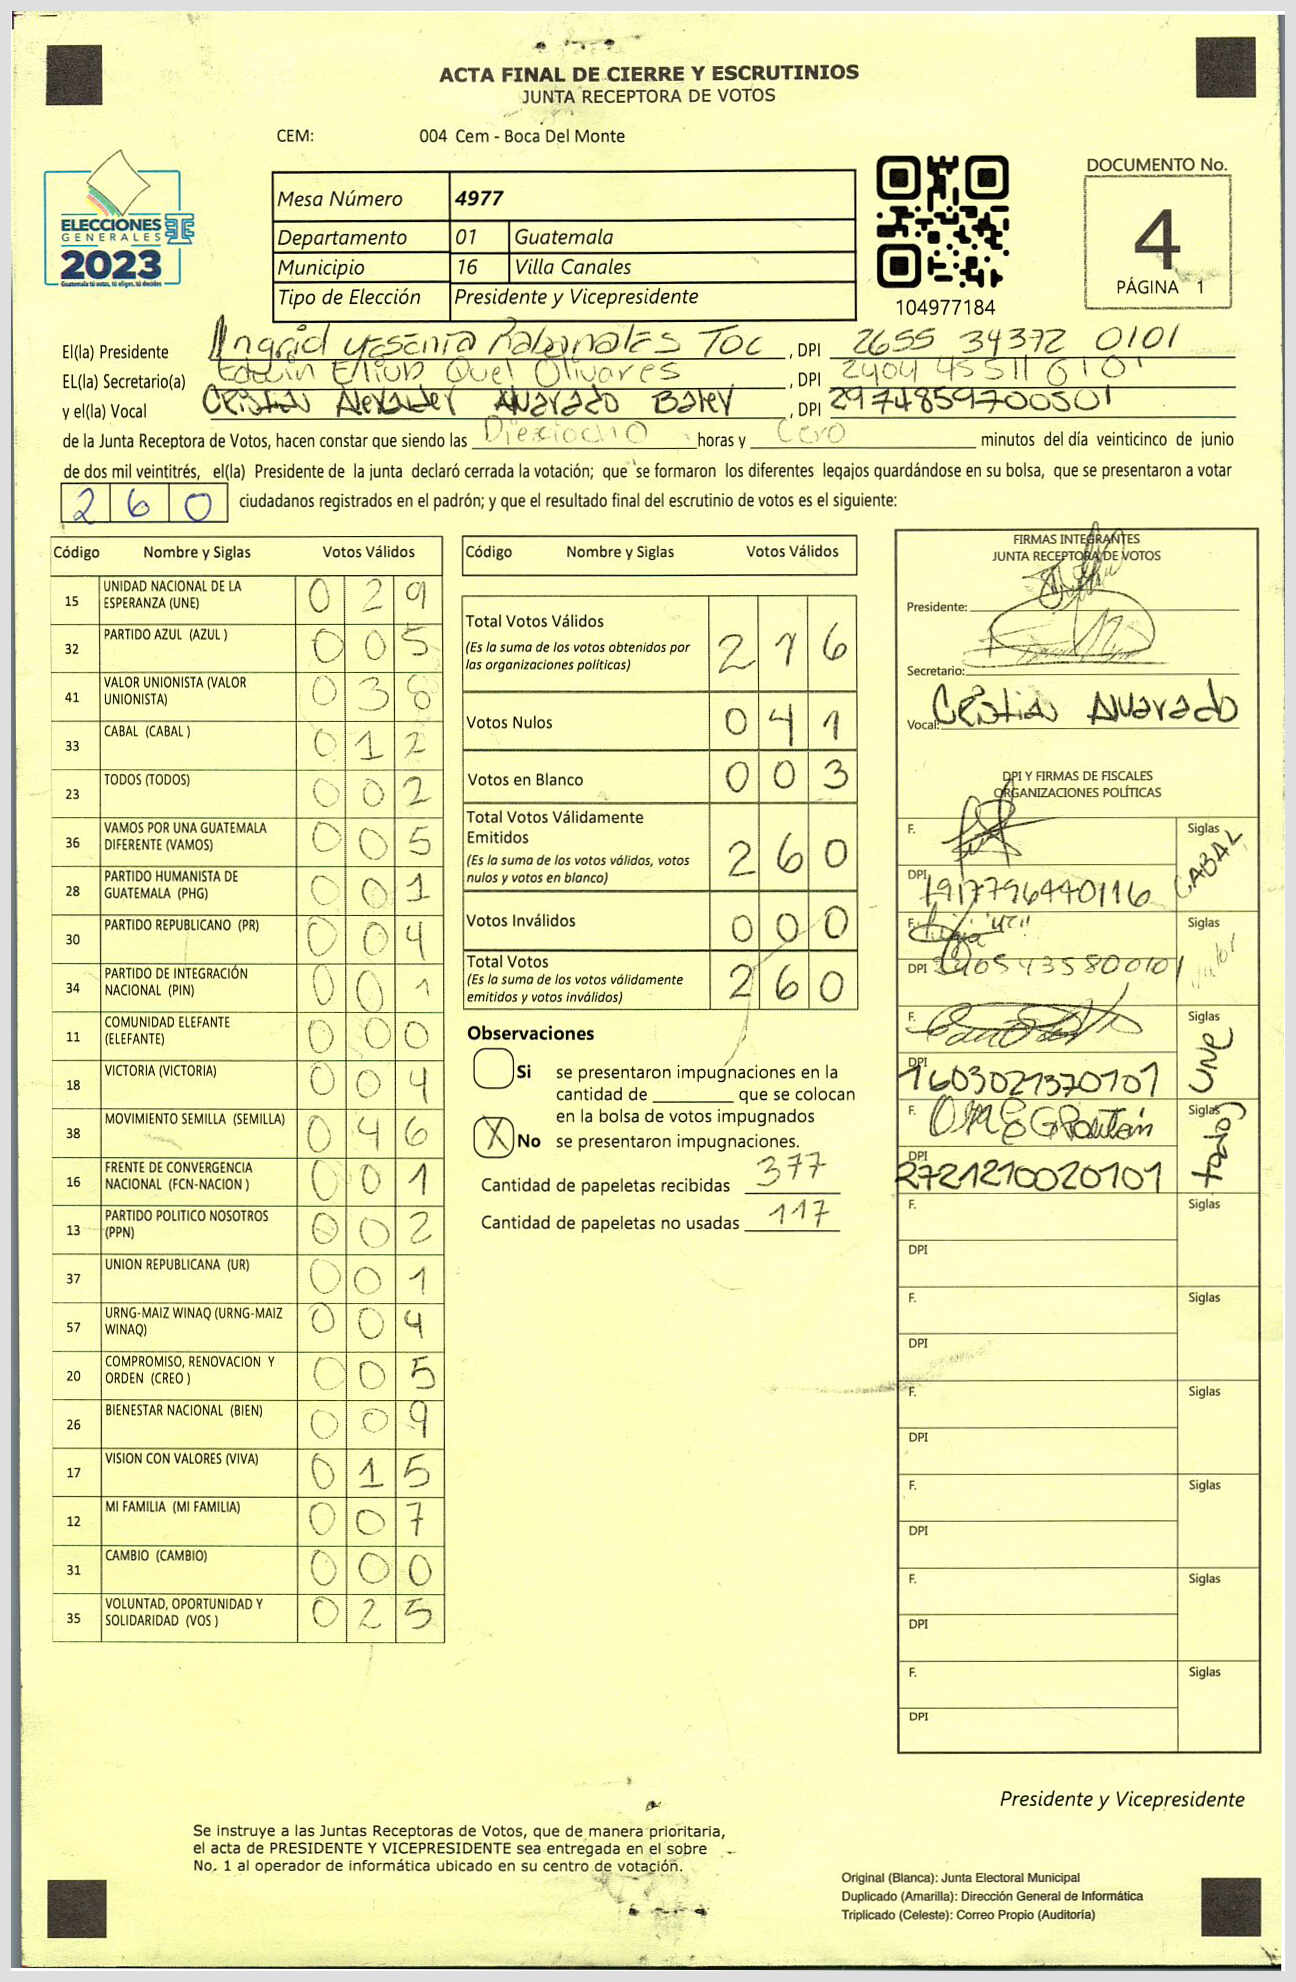 ACTA FINAL DE CIERRE Y ESCRUTINIOS
JUNTA RECEPTORA DE VOTOS
CEM: 004 Cem - Boca Del Monte
ELECCIONES
GENERALES
2023
Guatemala tú votas, tú eliges, tú decides
Mesa Número 4977
Departamento 01 Guatemala
Municipio 16 Villa Canales
Tipo de Elección Presidente y Vicepresidente
104977184
DOCUMENTO No.
4
PÁGINA 1
El(la) Presidente Ingrid Yesenia Rabanales Toc , DPI 2655 34372 0101
EL(la) Secretario(a) Edwin Eliub Quel Olivares , DPI 2404 45511 0101
y el(la) Vocal Cristian Alexander Alvarado Bater , DPI 2974859700501
de la Junta Receptora de Votos, hacen constar que siendo las Dieciocho horas y Cero minutos del día veinticinco de junio
de dos mil veintitrés, el(la) Presidente de la junta declaró cerrada la votación; que se formaron los diferentes legajos quardándose en su bolsa, que se presentaron a votar
260 ciudadanos registrados en el padrón; y que el resultado final del escrutinio de votos es el siguiente:
Código Nombre y Siglas Votos Válidos
15 UNIDAD NACIONAL DE LA ESPERANZA (UNE) 029
32 PARTIDO AZUL (AZUL ) 005
41 VALOR UNIONISTA (VALOR UNIONISTA) 038
33 CABAL (CABAL ) 012
23 TODOS (TODOS) 002
36 VAMOS POR UNA GUATEMALA DIFERENTE (VAMOS) 005
28 PARTIDO HUMANISTA DE GUATEMALA (PHG) 001
30 PARTIDO REPUBLICANO (PR) 004
34 PARTIDO DE INTEGRACIÓN NACIONAL (PIN) 001
11 COMUNIDAD ELEFANTE (ELEFANTE) 000
18 VICTORIA (VICTORIA) 004
38 MOVIMIENTO SEMILLA (SEMILLA) 046
16 FRENTE DE CONVERGENCIA NACIONAL (FCN-NACION ) 001
13 PARTIDO POLITICO NOSOTROS (PPN) 002
37 UNION REPUBLICANA (UR) 001
57 URNG-MAIZ WINAQ (URNG-MAIZ WINAQ) 004
20 COMPROMISO, RENOVACION Y ORDEN (CREO ) 005
26 BIENESTAR NACIONAL (BIEN) 009
17 VISION CON VALORES (VIVA) 015
12 MI FAMILIA (MI FAMILIA) 007
31 CAMBIO (CAMBIO) 000
35 VOLUNTAD, OPORTUNIDAD Y SOLIDARIDAD (VOS ) 025
Código Nombre y Siglas Votos Válidos
Total Votos Válidos 216
(Es la suma de los votos obtenidos por
las organizaciones políticas)
Votos Nulos 041
Votos en Blanco 003
Total Votos Válidamente
Emitidos 260
(Es la suma de los votos válidos, votos
nulos y votos en blanco)
Votos Inválidos 000
Total Votos 260
(Es la suma de los votos válidamente
emitidos y votos inválidos)
Observaciones
Si se presentaron impugnaciones en la
cantidad de ________ que se colocan
en la bolsa de votos impugnados
X No se presentaron impugnaciones.
Cantidad de papeletas recibidas 377
Cantidad de papeletas no usadas 117
FIRMAS INTEGRANTES
JUNTA RECEPTORA DE VOTOS
Presidente:
Secretario:
Vocal: Cristian Alvarado
DPI Y FIRMAS DE FISCALES
ORGANIZACIONES POLÍTICAS
F. Siglas CABAL
DPI 1917796440116
F. Siglas Valor
DPI
F. Siglas UNE
DPI 1603021370101
F. Siglas todos
DPI 2721210020101
F. Siglas
DPI
F. Siglas
DPI
F. Siglas
DPI
F. Siglas
DPI
F. Siglas
DPI
F. Siglas
DPI
Presidente y Vicepresidente
Se instruye a las Juntas Receptoras de Votos, que de manera prioritaria,
el acta de PRESIDENTE Y VICEPRESIDENTE sea entregada en el sobre
No. 1 al operador de informática ubicado en su centro de votación.
Original (Blanca): Junta Electoral Municipal
Duplicado (Amarilla): Dirección General de Informática
Triplicado (Celeste): Correo Propio (Auditoría)